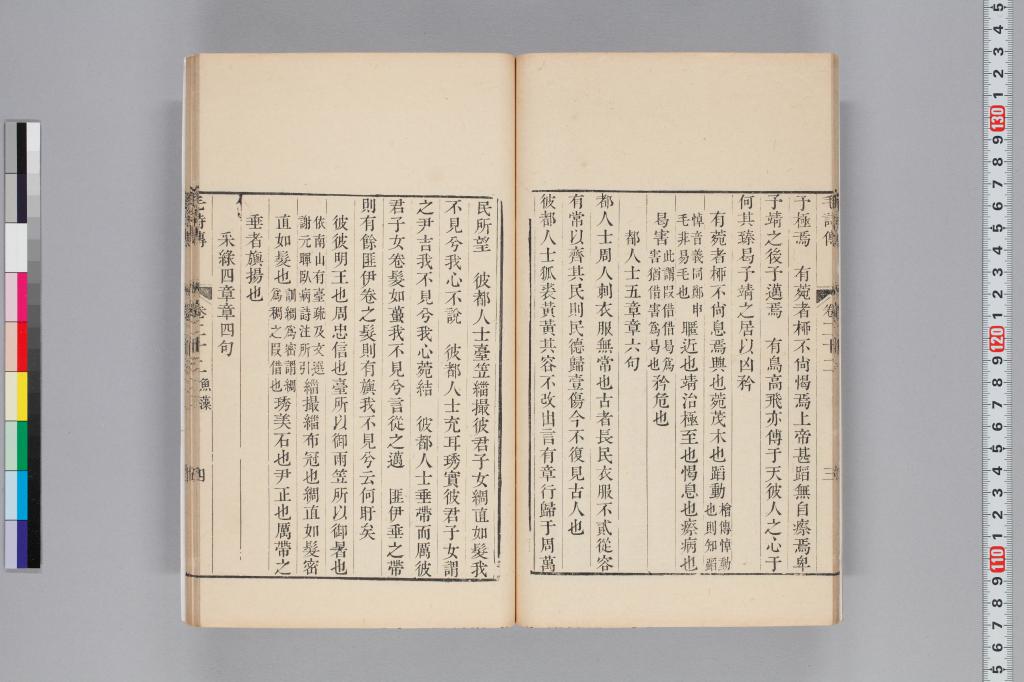 毛詩傳 卷二十二 三
予極焉　有菀者桺不尙愒焉上帝甚蹈無自瘵焉卑
予靖之後予邁焉　有鳥高飛亦傅于天彼人之心于
何其臻曷予靖之居以凶矜
有菀者桺不尙息焉興也菀茂木也蹈動
檜傳悼動
也則知蹈
悼音義同鄭申
毛非易毛也
暱近也靖治極至也愒息也瘵病也
曷害
此謂叚借借曷爲
害猶借害爲曷也
矜危也
都人士五章章六句
都人士周人刺衣服無常也古者長民衣服不貳從容
有常以齊其民則民德歸壹傷今不復見古人也
彼都人士狐裘黃黃其容不改出言有章行歸于周萬
民所望　彼都人士臺笠緇撮彼君子女綢直如髮我
不見兮我心不說　彼都人士充耳琇實彼君子女謂
之尹吉我不見兮我心菀結　彼都人士垂帶而厲彼
君子女卷髮如蠆我不見兮言從之邁　匪伊垂之帶
則有餘匪伊卷之髮則有旟我不見兮云何盱矣
彼彼明王也周忠信也臺所以御雨笠所以御暑也
依南山有臺疏及文選
謝元暉臥病詩注所引
緇撮緇布冠也綢直如髮密
直如髮也
訓綢爲密謂綢
爲稠之叚借也
琇美石也尹正也厲帶之
垂者旟揚也
采綠四章章四句
毛詩傳 卷二十二 漁藻 四